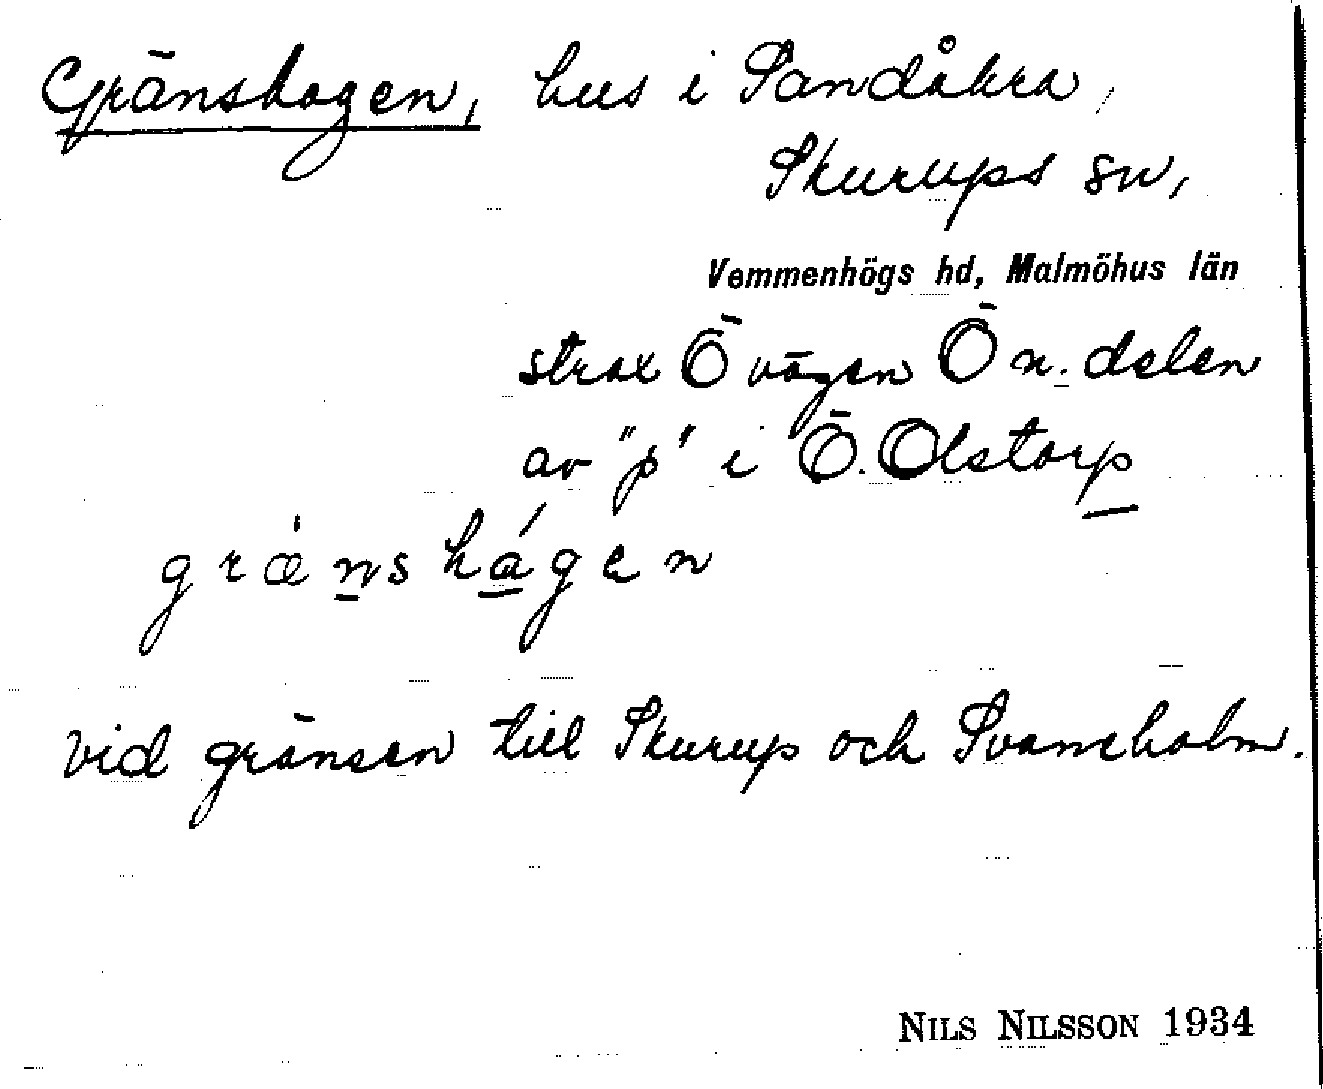 Gränshagen, hus i Sandåkra,
Skurups sn,
Vemmenhögs hd, Malmöhus län
strax Ö vägen Ö n. delen
av "p" i Ö. Olstorp
græ̀nshágen
vid gränsen till Skurup och Svaneholm.
NILS NILSSON 1934